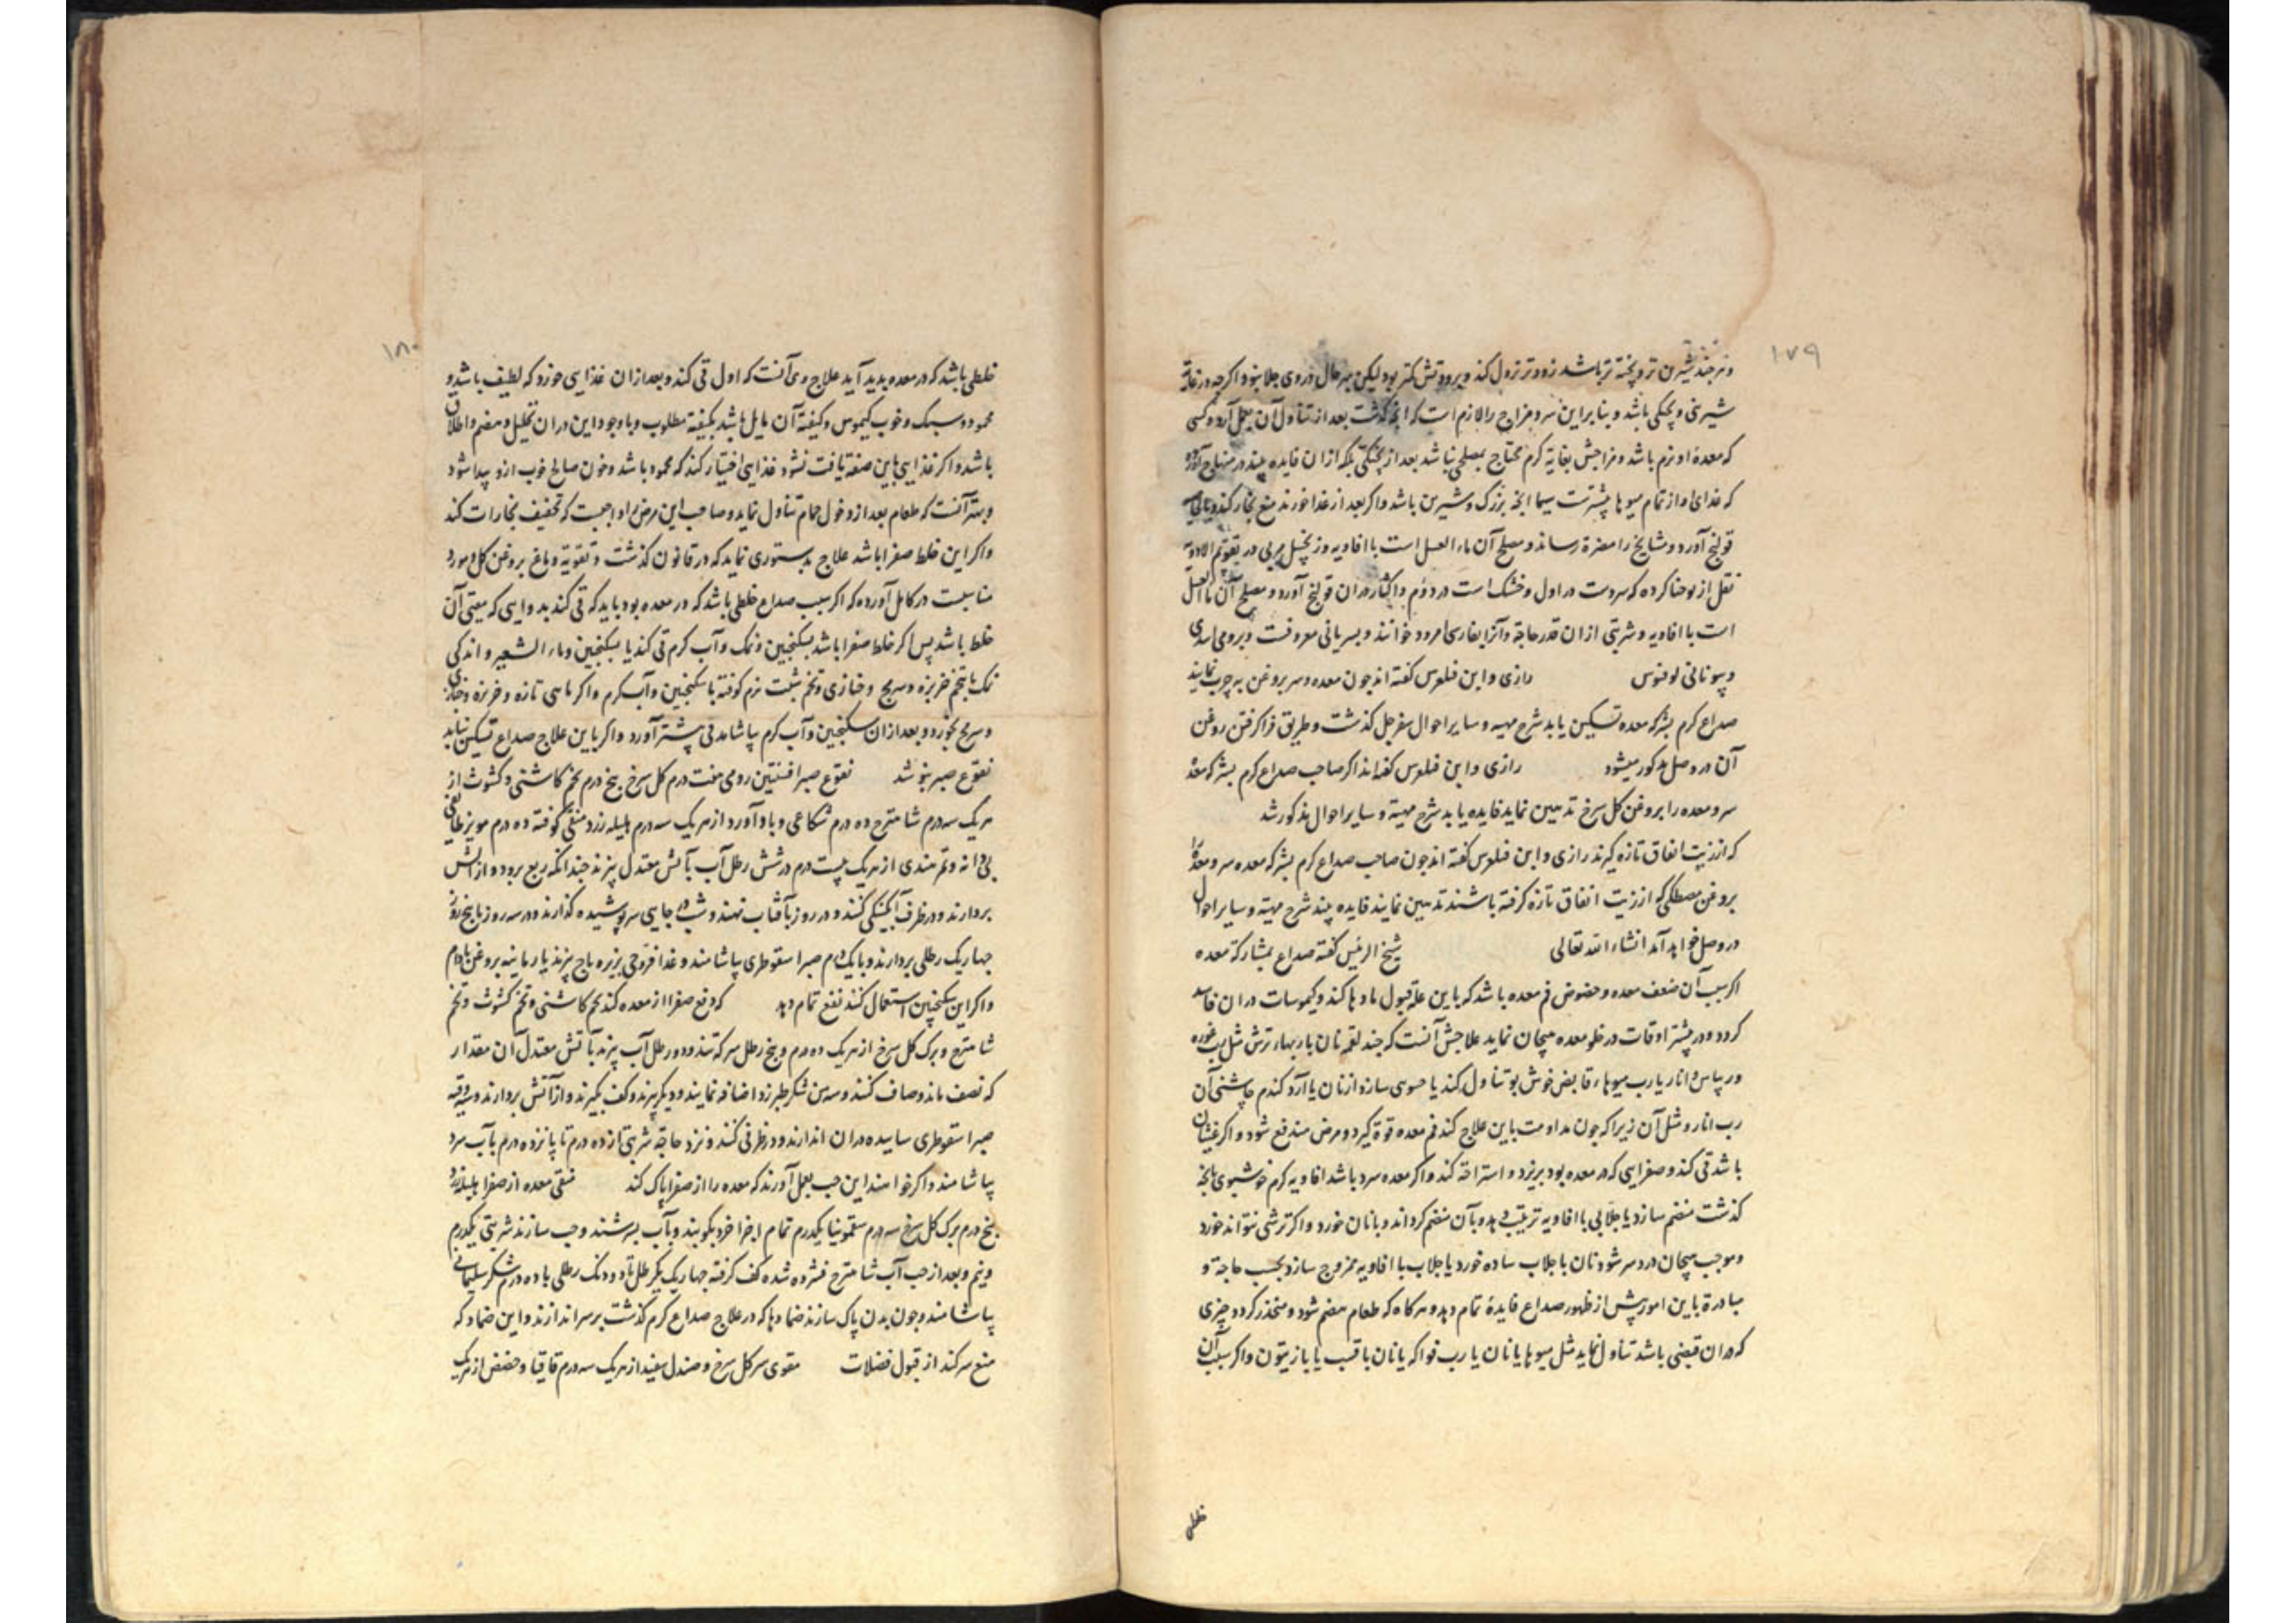 ۱۷۹
و هر چند شیرین تر و پخته تر باشد زودتر نزول کند و برودتش کمتر بود لیکن بهر حال در وی جلا بنود و اکرچه در غایة
شیرینی و پختکی باشد و بنا براین سرد مزاج را لازم است که انچه کذشت بعد از تناول آن بعمل آرد و کسی
که معدهٔ او نرم باشد و مزاجش بغایة کرم محتاج بمصلحی نباشد بعد از پختکی بلکه ازان فایده بیند در منهاج آورده
که غذای او از تمام میوها بیشترست سیما انچه بزرک و شیرین باشد و اکر بعد از غذا خورند منع بخار کند
قولنج آورد و مشایخ را مضرة رساند و مصلح آن ماء العسل است با افاویه و زنجبیل مربی در تقویم الادویة
نقل از یوحنا کرده که سردست در اول و خشک است در دوم و اکثار دران قولنج آورد و مصلح آن ماء العسل
است با افاویه و شربتی ازان قدر حاجة و آنرا بفارسی امرود خوانند و بسریانی معروفست و برومی
و بیونانی لوفنوس رازی و ابن فیلوس کفته اند جون معده و سر بروغن به چرب نمایند
صداع کرم بشرکه معده تسکین یابد شرح مهیه و سایر احوال سفرجل کذشت و طریق فرا کرفتن روغن
آن در وصل مذکور میشود رازی و ابن فیلوس کفته اند اکر صاحب صداع کرم بشرکه معده
سر و معده را بروغن کل سرخ تدهین نماید فایده یابد شرح مهیة و سایر احوال مذکور شد
که از زیت انفاق تازه کیرند رازی و ابن فیلوس کفته اند جون صاحب صداع کرم بشرکه معده سر و معده را
بروغن مصطکی که از زیت انفاق تازه کرفته باشند تدهین نمایند فایده بیند شرح مهیة و سایر احوال
در وصل خواهد آمد انشاء الله تعالی شیخ الرئیس کفته صداع بمشارکة معده
اکر سبب آن ضعف معده و خصوص فم معده باشد که باین علة قبول مادها کند و کیموسات دران فاسد
کردد و در بیشتر اوقات در خلو معده هیجان نماید علاجش آنست که چند لقمه نان با ربهاء ترش مثل رب غوره
و ریباس و انار یا رب میوهاء قابض خوش بو تناول کند یا حسوی سازد از نان یا آرد کندم چاشنی آن
رب انار و مثل آن زیرا که جون مداومت باین علاج کند فم معده قوة کیرد و مرض مندفع شود و اکر غثیان
باشد قی کند و صفرایی که در معده بود بریزد و استراحة کند و اکر معده سرد باشد افاویه کرم خوشبوی بانچه
کذشت منضم سازد یا جلابی با افاویه ترتیب دهد و بآن منضم کرداند و با نان خورد و اکر ترشی نتواند خورد
و موجب هیجان درد سر شود نان با جلاب ساده خورد یا جلاب با افاویه ممزوج سازد بحسب حاجة و
مبادرة باین امور پیش از ظهور صداع فایدهٔ تمام دهد و هرکاه که طعام هضم شود و منحدر کردد چیزی
که دران قبضی باشد تناول نماید مثل میوها با نان یا رب فواکه یا نان با قسب یا با زیتون و اکر سبب آن
خلطی
۱۸۰
خلطی باشد که در معده پدید آید علاج وی آنست که اول قی کند و بعد ازان غذایی خورد که لطیف باشد و
محمود و سبک و خوب کیموس و کیفیة آن مایل باشد بکیفیة مطلوب و با وجود این دران تحلیل و هضم و اطلاق
باشد و اکر غذایی باین صفة یافت نشود غذایی اختیار کند که محمود باشد و خون صالح خوب ازو پیدا شود
و بهتر آنست که طعام بعد از دخول حمام تناول نماید و صاحب این مرض را واجبست که تخفیف بخارات کند
و اکر این خلط صفرا باشد علاج بدستوری نماید که در قانون کذشت و تقویة دماغ بروغن کل و مورد
مناسبست در کامل آورده که اکر سبب صداع خلطی باشد که در معده بود باید که قی کند بدوایی که مقیئ آن
خلط باشد پس اکر خلط صفرا باشد بسکنجبین و نمک و آب کرم قی کند یا بسکنجبین و ماء الشعیر و اندکی
نمک یا بتخم خربزه و سرمج و خبازی و تخم شبت نرم کوفته با سکنجبین و آب کرم و اکر ماهی تازه و خربزه و خبازی
و سرمج بخورد و بعد ازان سکنجبین و آب کرم بیاشامد قی بیشتر آورد و اکر باین علاج صداع تسکین نیابد
نقوع صبر بنوشد نقوع صبر افسنتین رومی هفت درم کل سرخ پنج درم تخم کاسنی و کشوث از
هریک سه درم شاهترج ده درم شکاعی و بادآورد از هریک سه درم هلیله زرد منقی کوفته ده درم مویز طایفی
بی دانه و تمر هندی از هریک بیست درم در شش رطل آب بآتش معتدل پزند چندانکه ربع برود و از آتش
بردارند و در ظرف آبکینکی کنند و در روز بآفتاب نهند و شب در جایی سر پوشیده کذارند و در سه روز تا پنج روز
چهاریک رطلی بردارند و با یک درم صبر اسقوطری بیاشامند و غذا فروجی بزیره باج پزند یا رمانیه بروغن بادام
و اکر این سکنجبین استعمال کنند نفع تمام دهد که دفع صفرا از معده کند تخم کاسنی و تخم کشوث و تخم
شاهترج و برک کل سرخ از هریک ده درم و پنج رطل سرکه تند و دو رطل آب پزند بآتش معتدل آن مقدار
که نصف ماند و صاف کنند و سه من شکر طبرزد اضافه نمایند و دیکر پزند و کف بکیرند و از آتش بردارند و سه وقیه
صبر اسقوطری ساییده دران اندازند و در ظرفی کنند و نزد حاجة شربتی از ده درم تا پانزده درم با آب سرد
بیاشامند و اکر خواهند این حب بعمل آورند که معده را از صفرا پاک کند منقی معده از صفرا هلیله زرد
پنج درم برک کل سرخ سه درم سقمونیا یکدرم تمام اجزا خرد بکوبند و بآب بسرشند و حب سازند شربتی یکدرم
و نیم و بعد از حب آب شاهترج فشرده شده کف کرفته چهاریک یکرطل تا دو دنک رطلی با ده درم شکر سلیمانی
بیاشامند و جون بدن پاک سازند ضمادها که در علاج صداع کرم کذشت بر سر اندازند و این ضماد که
منع سر کند از قبول فضلات مقوی سر کل سرخ و صندل سفید از هریک سه درم قاقیا و حضض از هریک